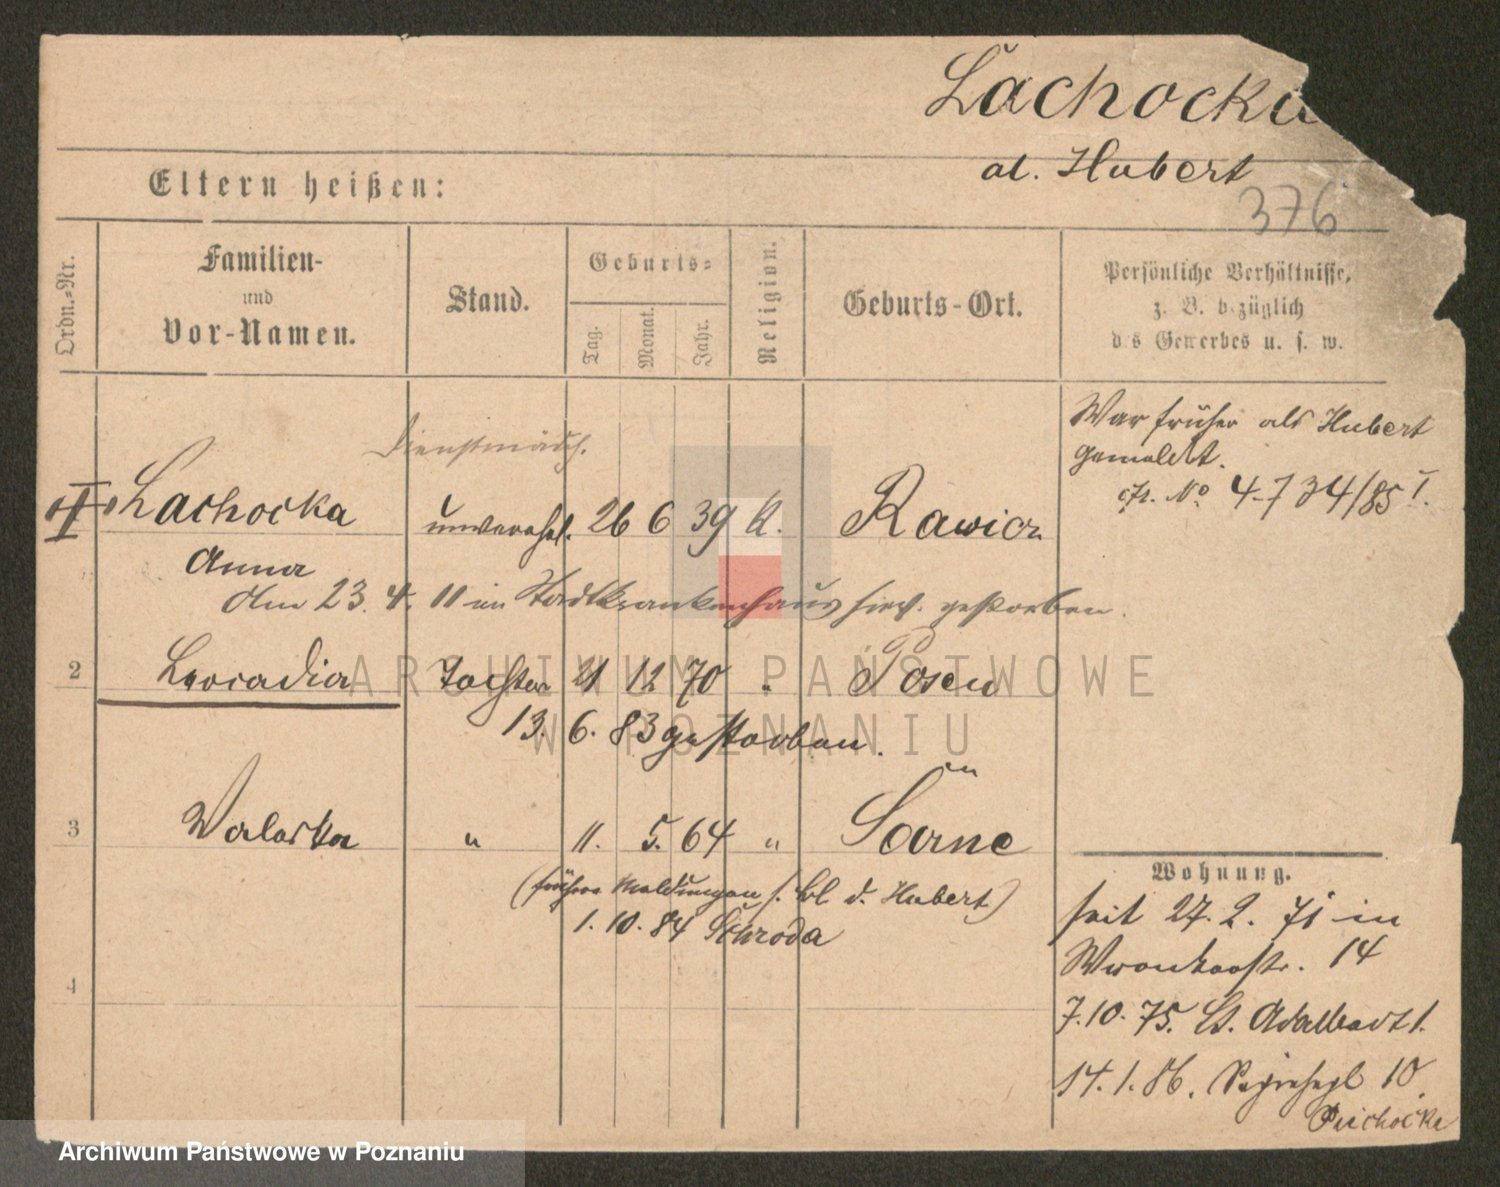 Lachocka
al. Hubert
376
Eltern heißen:
Ordn.-Nr.
Familien-
und
Vor-Namen.
Stand.
Geburts-
Tag.
Monat.
Jahr.
Religion.
Geburts-Ort.
Persönliche Verhältnisse,
z. B. bezüglich
des Gewerbes u. s. w.
War früher als Hubert
gemeldet.
No 4734/85 I.
Dienstmädch.
Lachocka unverehel. 26 6 39 K. Rawicz
Anna
Am 23. 4. 11 im Stadtkrankenhaus hies. gestorben.
2 Leocadia Tochter 21 12 70 " Posen
13. 6. 83 gestorben.
3 Valeska " 11. 5. 64 " Sarne
(frühere Meldungen s. bl d. Hubert)
1. 10. 84 Schroda
4
Wohnung.
seit 27. 2. 71 in
Wronkerstr. 14
7. 10. 75. St. Adalbert 1.
14. 1. 86. 10
ARCHIWUM PAŃSTWOWE
W POZNANIU
Archiwum Państwowe w Poznaniu